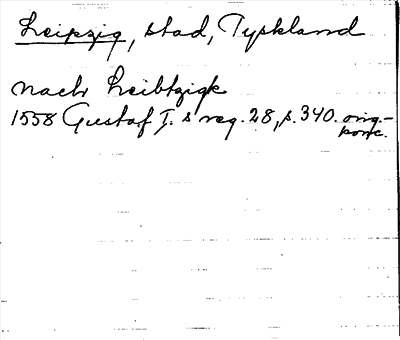 Leipzig, stad, Tyskland
nach Leibtzigk
1558 Gustaf I. s reg. 28, s. 340. orig.-
konc.